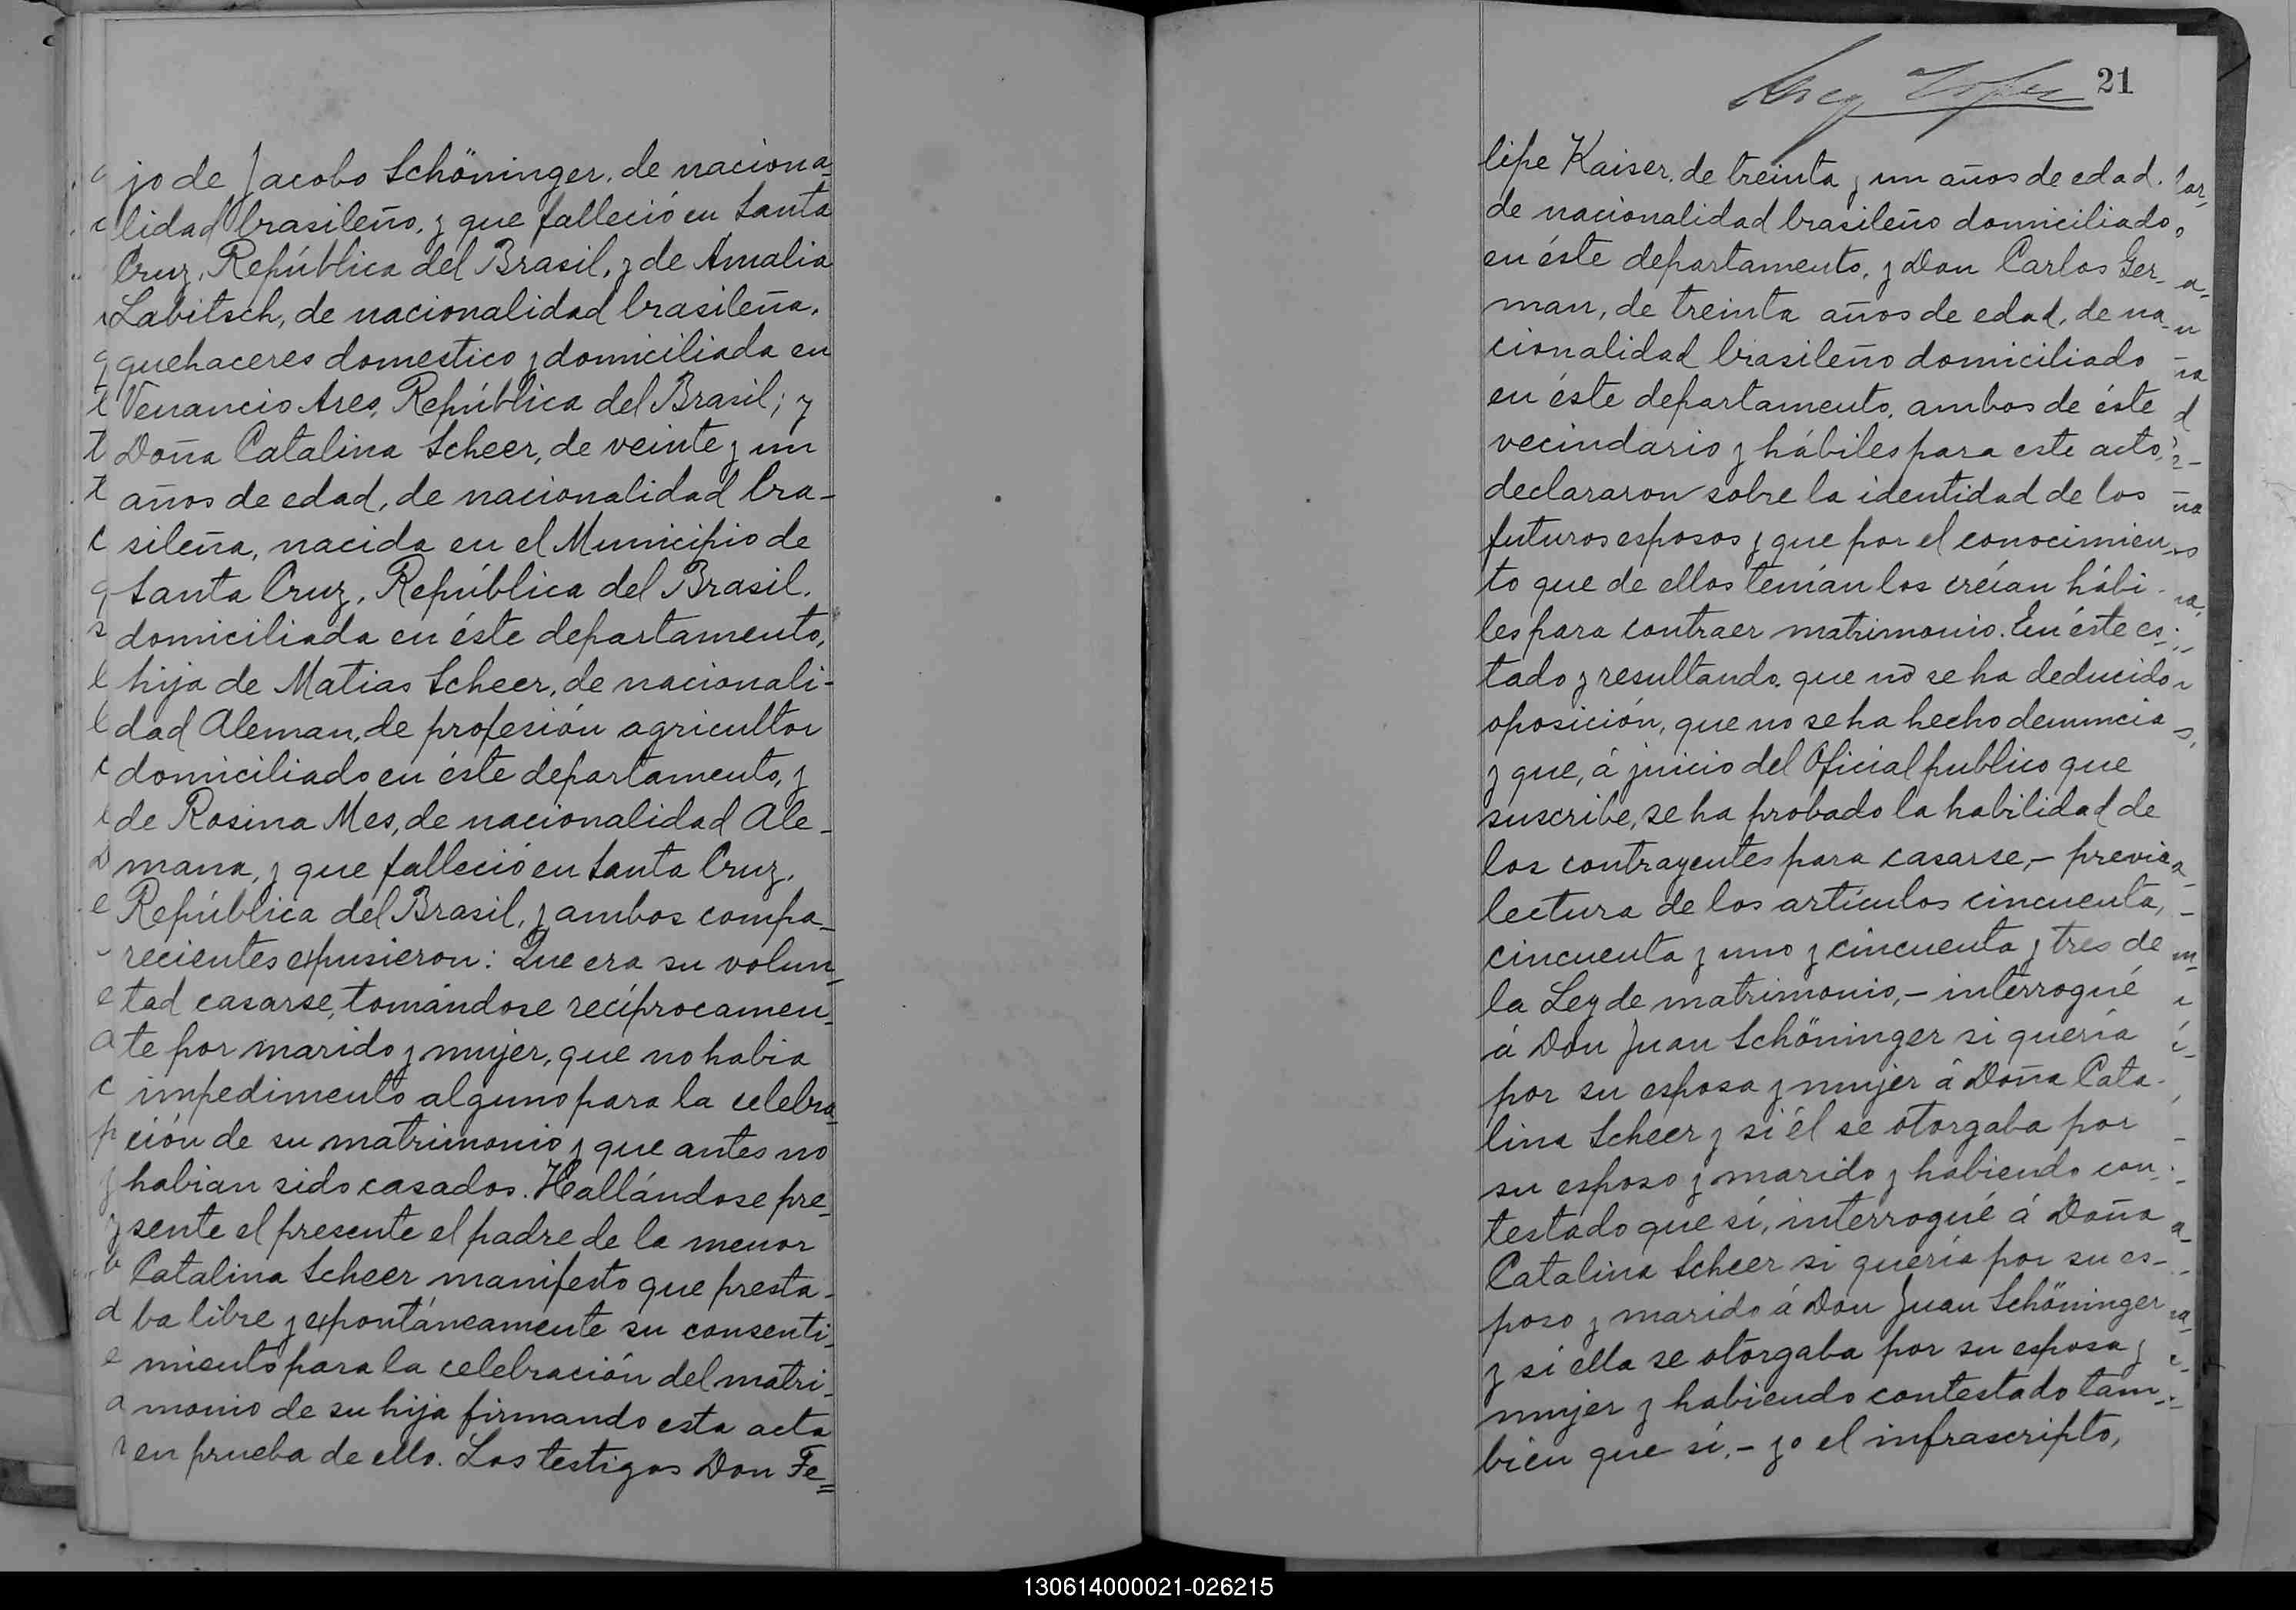 jo de Jacobo Schöninger, de naciona-
lidad brasileño, y que falleció en Santa
Cruz, República del Brasil, y de Amalia
Labitsch, de nacionalidad brasileña,
quehaceres domestico y domiciliada en
Venancio Ares, República del Brasil; y
Doña Catalina Scheer, de veinte y un
años de edad, de nacionalidad bra-
sileña, nacida en el Municipio de
Santa Cruz, República del Brasil,
domiciliada en éste departamento,
hija de Matias Scheer, de nacionali-
dad Aleman, de profesión agricultor
domiciliado en éste departamento, y
de Rosina Mes, de nacionalidad Ale-
mana, y que falleció en Santa Cruz,
República del Brasil, y ambos compa-
recientes expusieron: Que era su volun-
tad casarse, tomándose recíprocamen-
te por marido y mujer, que no habia
impedimento alguno para la celebra-
ción de su matrimonio y que antes no
habian sido casados. Hallándose pre-
sente el presente el padre de la menor
Catalina Scheer manifesto que presta-
ba libre y expontáneamente su consenti-
miento para la celebración del matri-
monio de su hija firmando esta acta
en prueba de ello. Los testigos Don Fe=
21
lipe Kaiser, de treinta y un años de edad.
de nacionalidad brasileño domiciliado
en éste departamento, y Don Carlos Ger-
man, de treinta años de edad, de na-
cionalidad brasileño domiciliado
en éste departamento, ambos de éste
vecindario y hábiles para este acto,
declararon sobre la identidad de los
futuros esposos y que por el conocimien-
to que de ellos tenían los creían hábi-
les para contraer matrimonio. En éste es-
tado y resultando, que no se ha deducido
oposición, que no se ha hecho denuncia
y que, á juicio del Oficial publico que
suscribe, se ha probado la habilidad de
los contrayentes para casarse,- previa
lectura de los artículos cincuenta,
cincuenta y uno y cincuenta y tres de
la Ley de matrimonio,- interrogué
á Don Juan Schöninger si quería
por su esposa y mujer á Doña Cata-
lina Scheer y si él se otorgaba por
su esposo y marido y habiendo con-
testado que sí, interrogué á Doña
Catalina Scheer si quería por su es-
poso y marido á Don Juan Schöninger
y si ella se otorgaba por su esposa y
mujer y habiendo contestado tam-
bien que sí,- yo el infrascripto,
130614000021-026215